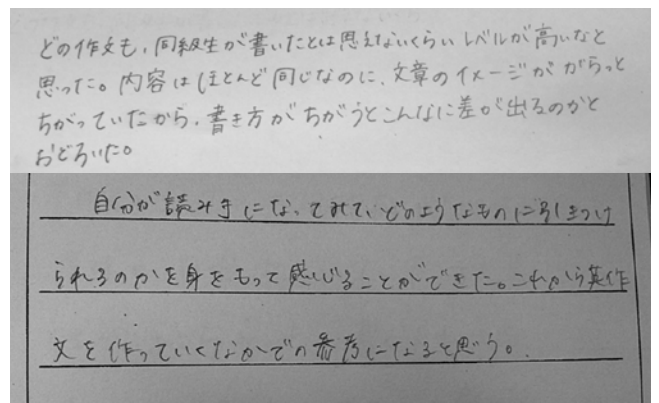 どの作文も、同級生が書いたとは思えないくらいレベルが高いなと
思った。内容はほとんど同じなのに、文章のイメージががらっと
ちがっていたから、書き方がちがうとこんなに差が出るのかと
おどろいた。
自分が読み手になってみて、どのようなものに引きつけ
られるのかを身をもって感じることができた。これから英作
文を作っていくなかでの参考になると思う。